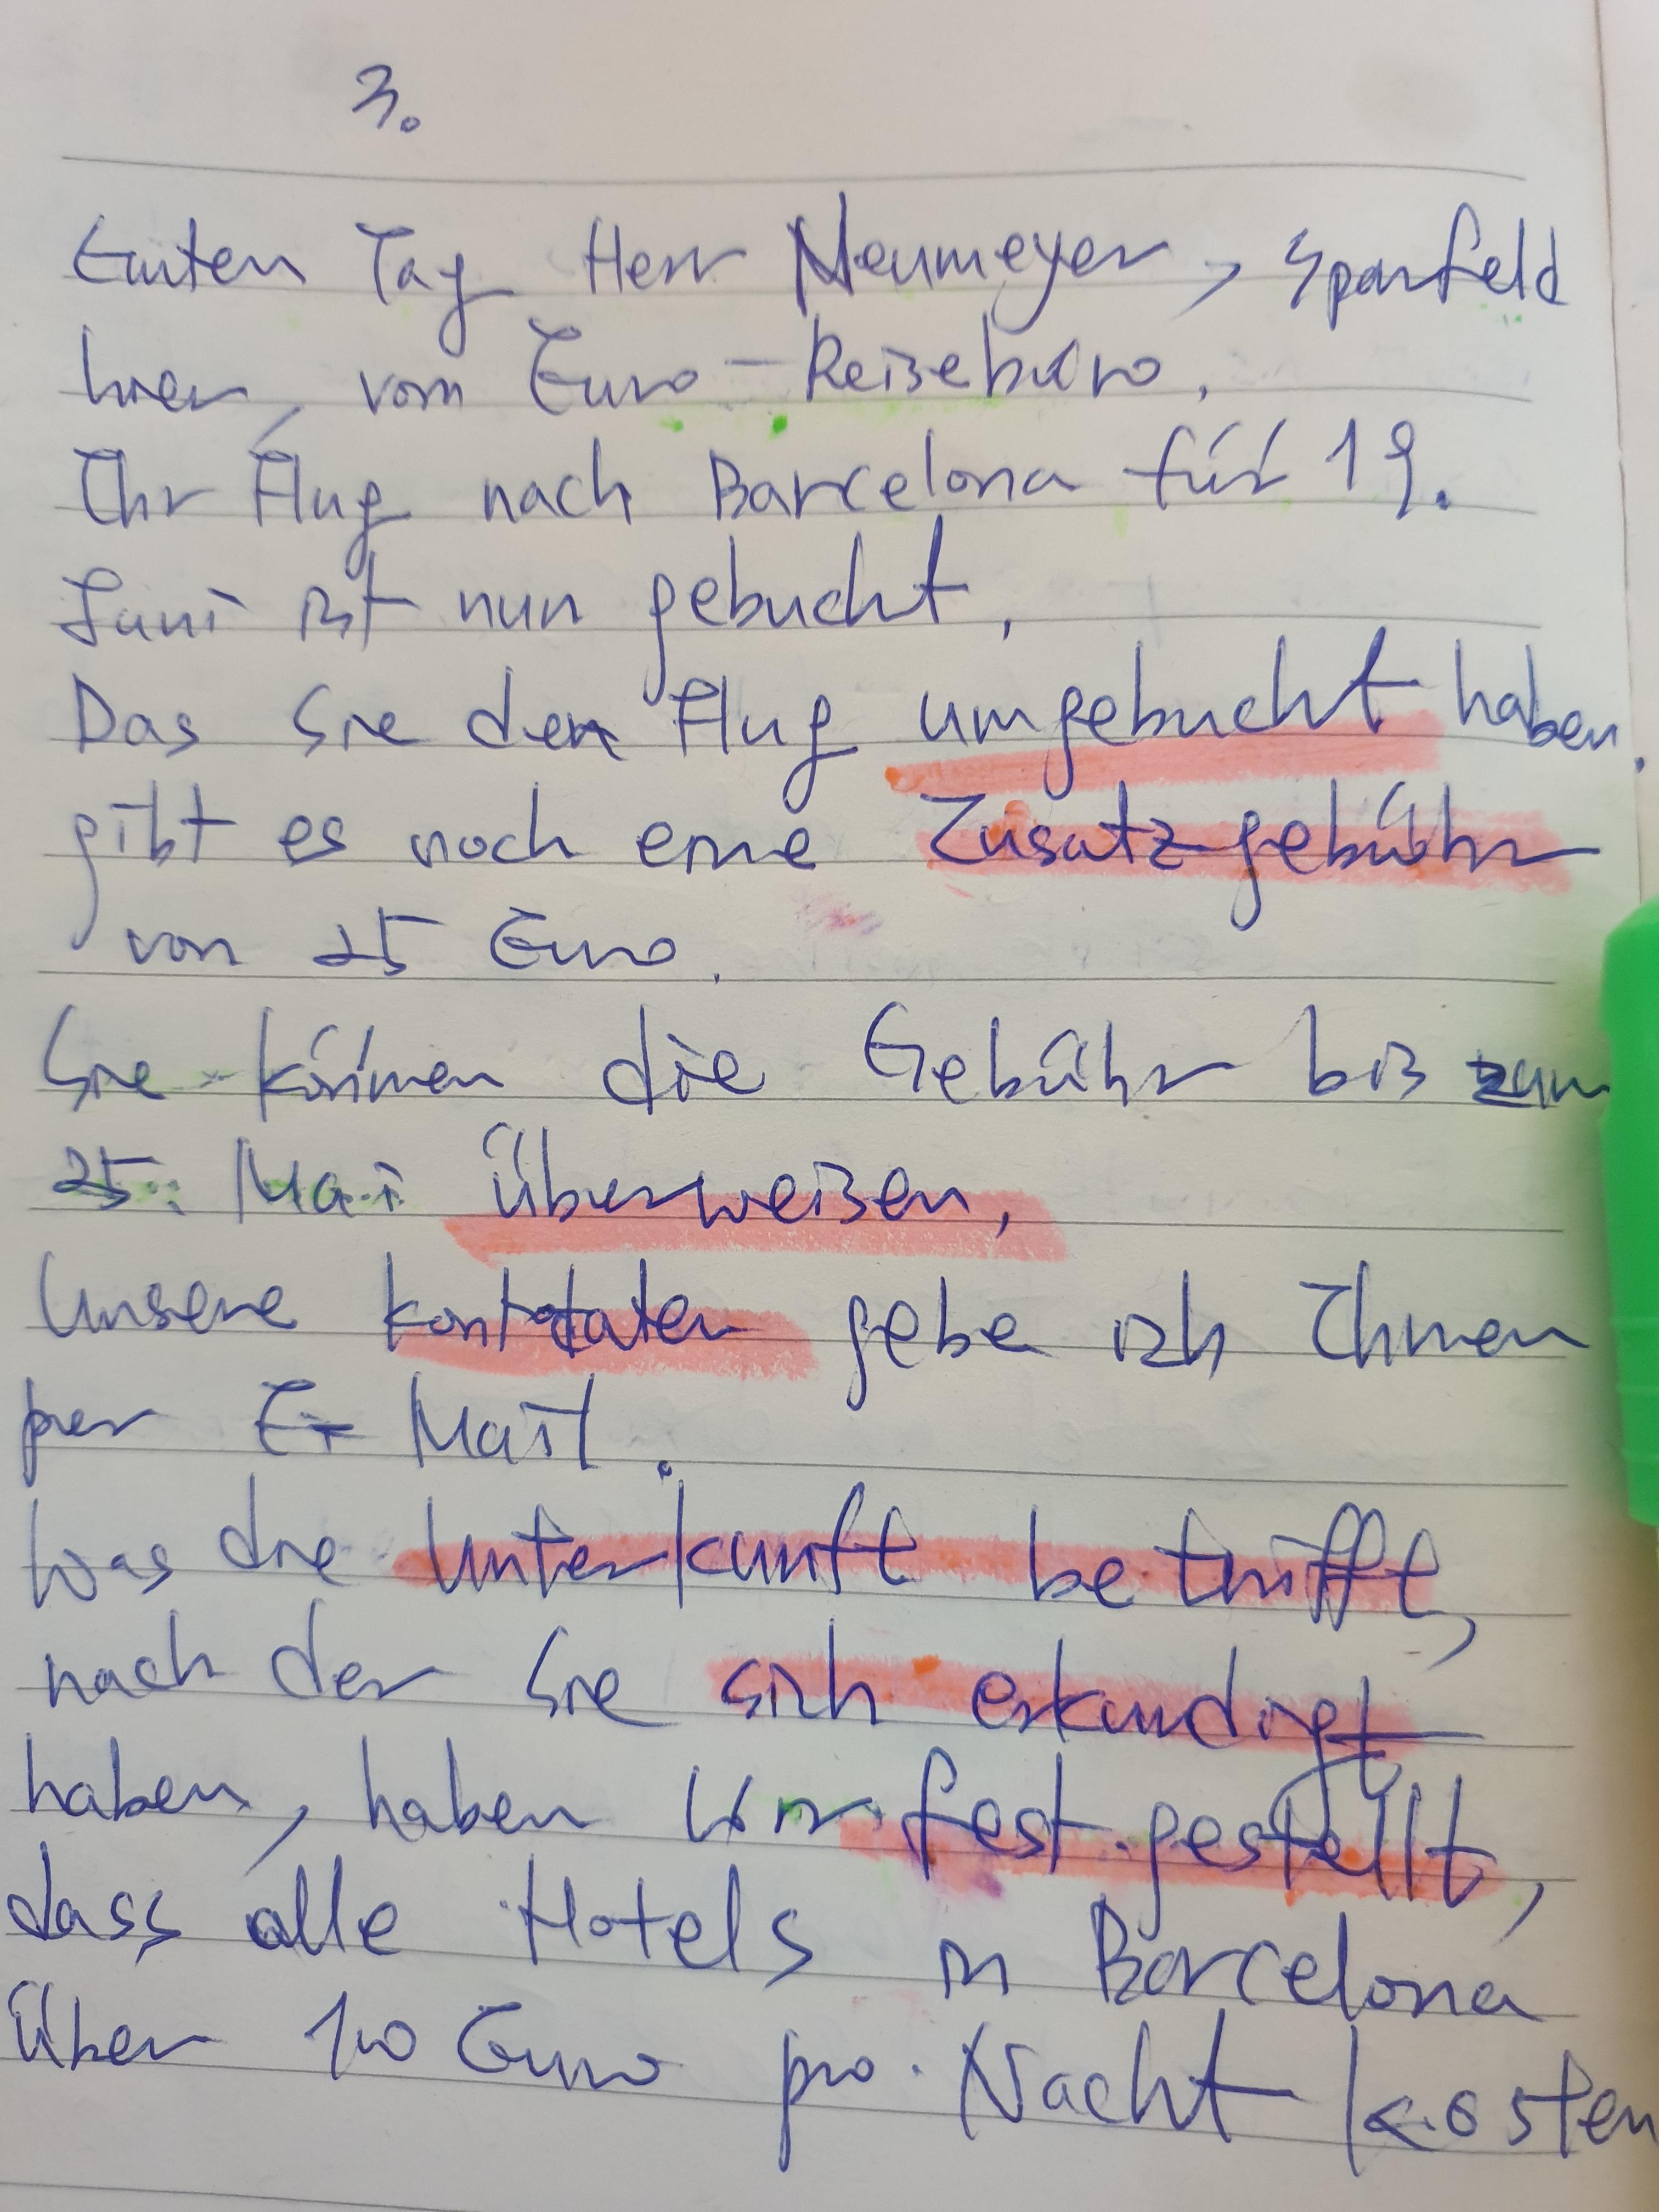 3.
Guten Tag Herr Neumeyer, Sparfeld
hier, vom Euro-Reisebüro.
Ihr Flug nach Barcelona für 19.
Juni ist nun gebucht.
Das Sie den Flug umgebucht haben.
gibt es noch eine Zusatzgebühr
von 25 Euro.
Sie können die Gebühr bis zum
25. Mai überweisen.
Unsere Kontodaten gebe ich Ihnen
per E-Mail.
Was die Unterkunft betrifft,
nach der Sie sich erkundigt
haben, haben wir festgestellt,
dass alle Hotels in Barcelona
über 100 Euro pro Nacht kosten